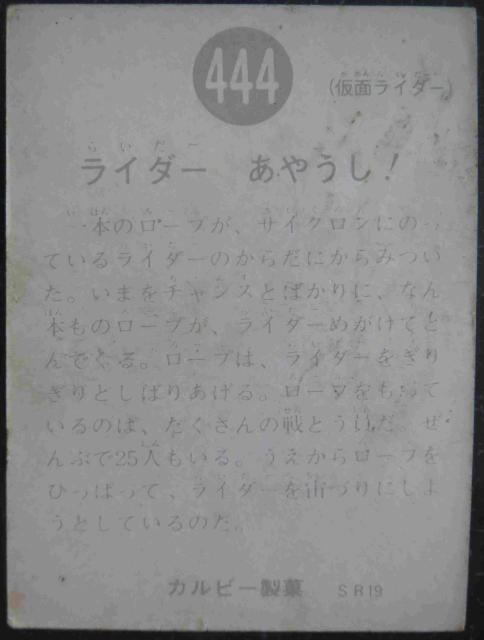 444
(仮面ライダー)
ライダー　あやうし！
一本のロープが、サイクロンにのっ
ているライダーのからだにからみつい
た。いまをチャンスとばかりに、なん
本ものロープが、ライダーめがけてと
んでくる。ロープは、ライダーをぎり
ぎりとしばりあげる。ロープをもって
いるのは、たくさんの戦とういんだ。ぜ
んぶで25人もいる。うえからロープを
ひっぱって、ライダーを宙づりにしよ
うとしているのだ。
カルビー製菓　SR19